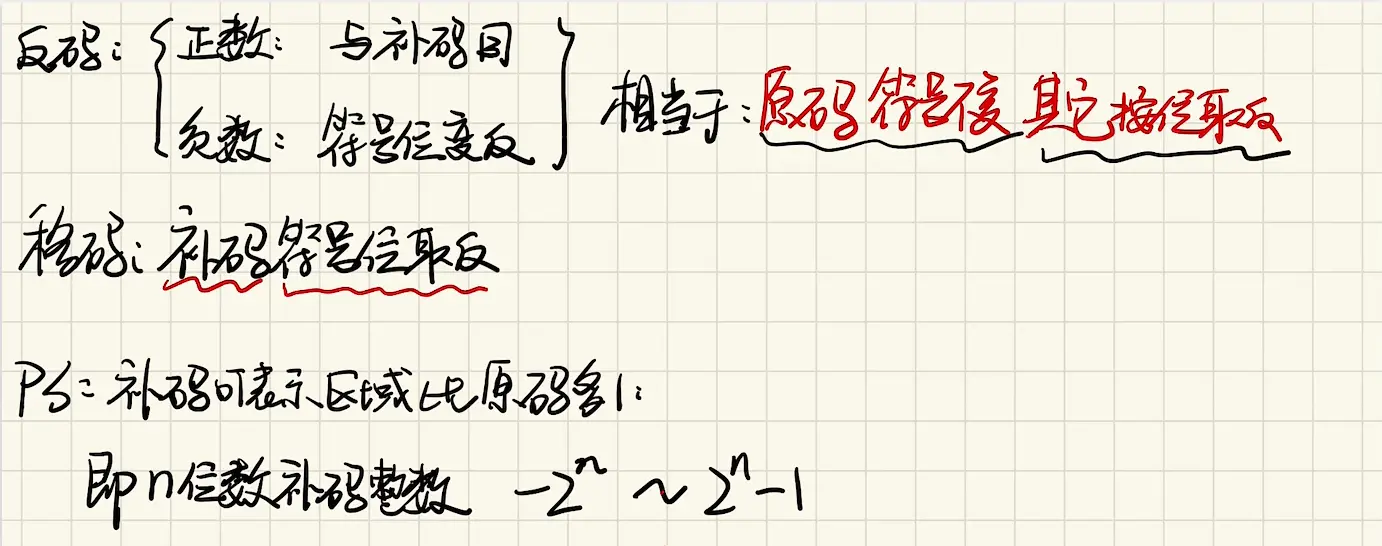 反码：正数： 与补码同
负数： 符号位变反
相当于：原码符号不变 其它按位取反
移码：补码符号位取反
PS：补码可表示区域比原码多1：
即n位数补码整数 -2^n ~ 2^n-1